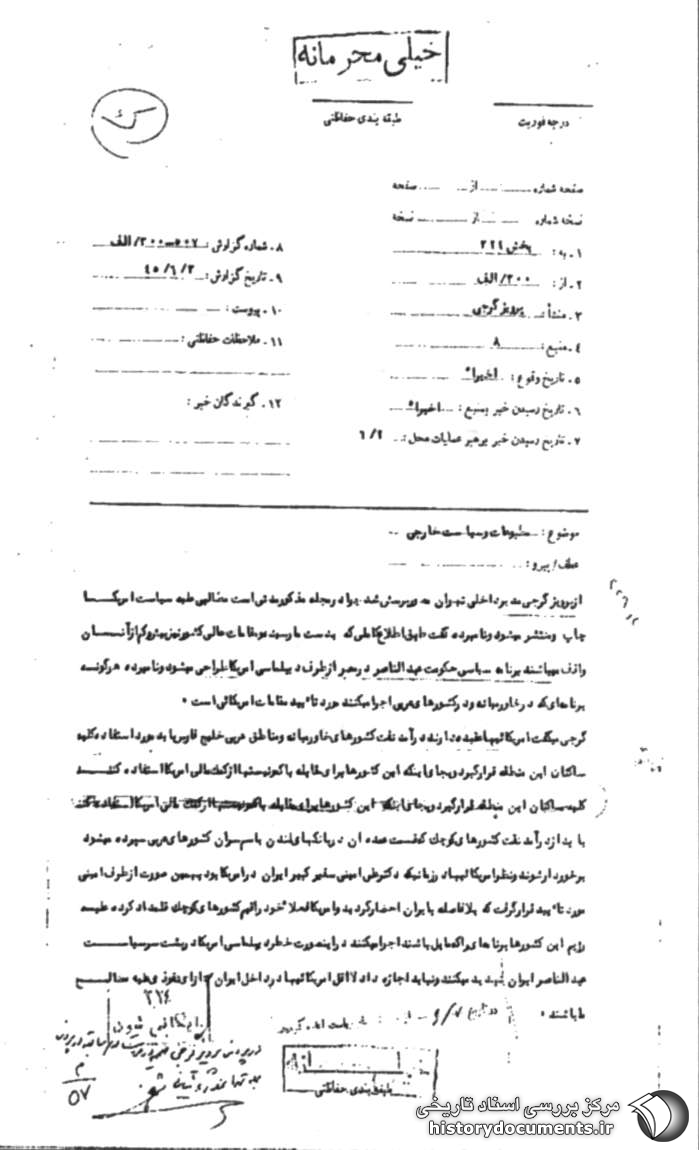 خیلی محرمانه
درجه فوریت
طبقه بندی حفاظتی
صفحه شماره از صفحه
نسخه شماره از نسخه
۱ ـ به : بخش ۲۲۱
۲ ـ از : ۲۰۰/ الف
۳ ـ منشأ : پرویز گرجی
۴ ـ منبع : ۸
۵ ـ تاریخ وقوع : اخیرا"
۶ ـ تاریخ رسیدن خبر بمنبع : اخیرا"
۷ ـ تاریخ رسیدن خبر برهبر عملیات محل :
۸ ـ شماره گزارش : ۲۰۰/ الف
۹ ـ تاریخ گزارش : ۴۵/۶/۲
۱۰ ـ پیوست :
۱۱ ـ ملاحظات حفاظتی :
۱۲ ـ گیرندگان خبر :
موضوع : مطبوعات و سیاست خارجی
عطف / پیرو :
از پرویز گرجی مدیر داخلی تهران پرسش شد چرا در مجله مذکور مدتی است مطالبی علیه سیاست امریکا
چاپ و منتشر میشود و نامبرده گفت طبق اطلاع کاملی که بدست ما رسیده و مقامات عالی کشور نیز بیش و کم از آن
واقف میباشند برنامه سیاسی حکومت عبدالناصر در مصر از طرف دیپلماسی امریکا طراحی میشود و نامبرده هرگونه
برنامه‌ای که در خاورمیانه و در کشورهای عربی اجرا میکند مورد تأیید مقامات امریکائی است .
گرجی میگفت امریکائیها عقیده دارند درآمد نفت کشورهای خاورمیانه و مناطق عربی خلیج فارس باید مورد استفاده کلیه
ساکنان این منطقه قرار گیرد و بجای اینکه این کشورها برای مقابله با کمونیستها از کمک مالی امریکا استفاده کنند
کلیه ساکنان این منطقه قرار گیرد و بجای اینکه این کشورها برای مقابله با کمونیستها از کمک مالی امریکا استفاده کنند
باید از درآمد نفت کشورهای کوچک که قسمت عمده آن در بانکهای لندن باسم سران کشورهای عربی سپرده میشود
برخوردار شوند و نظر امریکائیها در زمانیکه دکتر علی امینی سفیر کبیر ایران در امریکا بود بهمین صورت از طرف امینی
مورد تأیید قرار گرفت که بلافاصله بایران احضار گردید و امریکا فعلا" خود را قیم کشورهای کوچک قلمداد کرده علیه
رژیم این کشورها برنامه‌ای را که مایل باشند اجرا میکنند در اینصورت خطر دیپلماسی امریکا در پشت سر سیاست
عبدالناصر ایران را تهدید میکند و نباید اجازه داد لااقل امریکائیها در داخل ایران دارای نفوذی علیه مصالح
ما باشند .
طبقه بندی حفاظتی
۵۷
مرکز بررسی اسناد تاریخی
historydocuments.ir